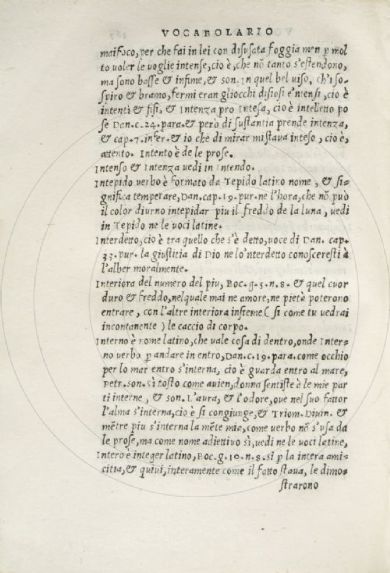 VOCABOLARIO
mai foco, per che fai in lei con disusata foggia men p mol
to uoler le uoglie intense, cio è, che nõ tanto s'estendono,
ma sono basse & infime, & son. In quel bel uiso, ch'i so-
spiro & bramo, fermi eran gliocchi disiosi e'ntensi, cio è
intenti & fisi, & Intenza pro Intesa, cio è intelletto po
se Dan. c. 24. para. & però di sustantia prende intenza,
& cap. 7. infer. & io che di mirar mi staua inteso, cio è,
attento. Intento è de le prose.
Intenso & Intenza uedi in Intendo.
Intepido uerbo è formato da Tepido latino nome, & si-
gnifica temperare, Dan. cap. 19. pur. ne l'hora, che nõ può
il calor diurno intepidar piu il freddo de la luna, uedi
in Tepido ne le uoci latine.
Interdetto, cio è tra quello che s'è detto, uoce di Dan. cap.
33. pur. la giustitia di Dio ne lo'nterdetto conosceresti à
l'alber moralmente.
Interiora del numero del piu, Boc. g. 5. n. 8. & quel cuor
duro & freddo, nel quale mai ne amore, ne pietà poterono
entrare, con l'altre interiora insieme ( si come tu uedrai
incontanente ) le caccio di corpo.
Interno è nome latino, che uale cosa di dentro, onde Inter-
no uerbo p andare in entro, Dan. c. 19. para. come occhio
per lo mar entro s'interna, cio è guarda entro al mare,
Petr. son. Si tosto come auien, donna sentiste à le mie par
ti interne, & son. L'aura, & l'odore, oue nel suo fattor
l'alma s'interna, cio è si congiunge, & Triom. Diuin. &
mẽtre piu s'interna la mẽte mia, come uerbo nõ s'usa da
le prose, ma come nome adiettiuo si, uedi ne le uoci latine,
Intero è integer latino, Boc. g. 10. n. 8. si p la intera ami-
citia, & quiui, interamente come il fatto staua, le dimo-
strarono